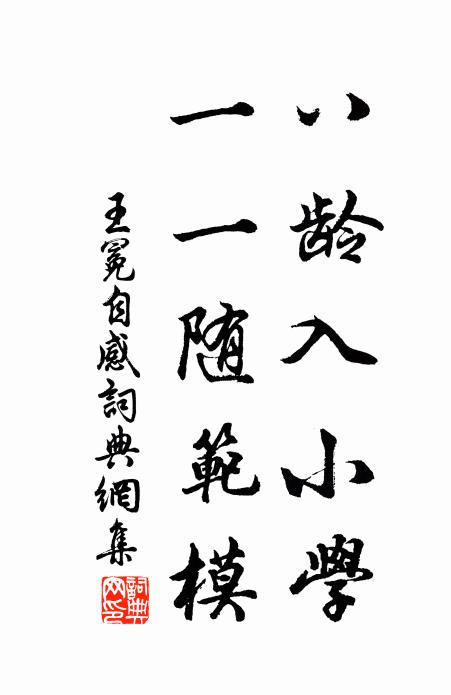 八龄入小學
一一随範模
王冕自感詞典網集
詞典
网印